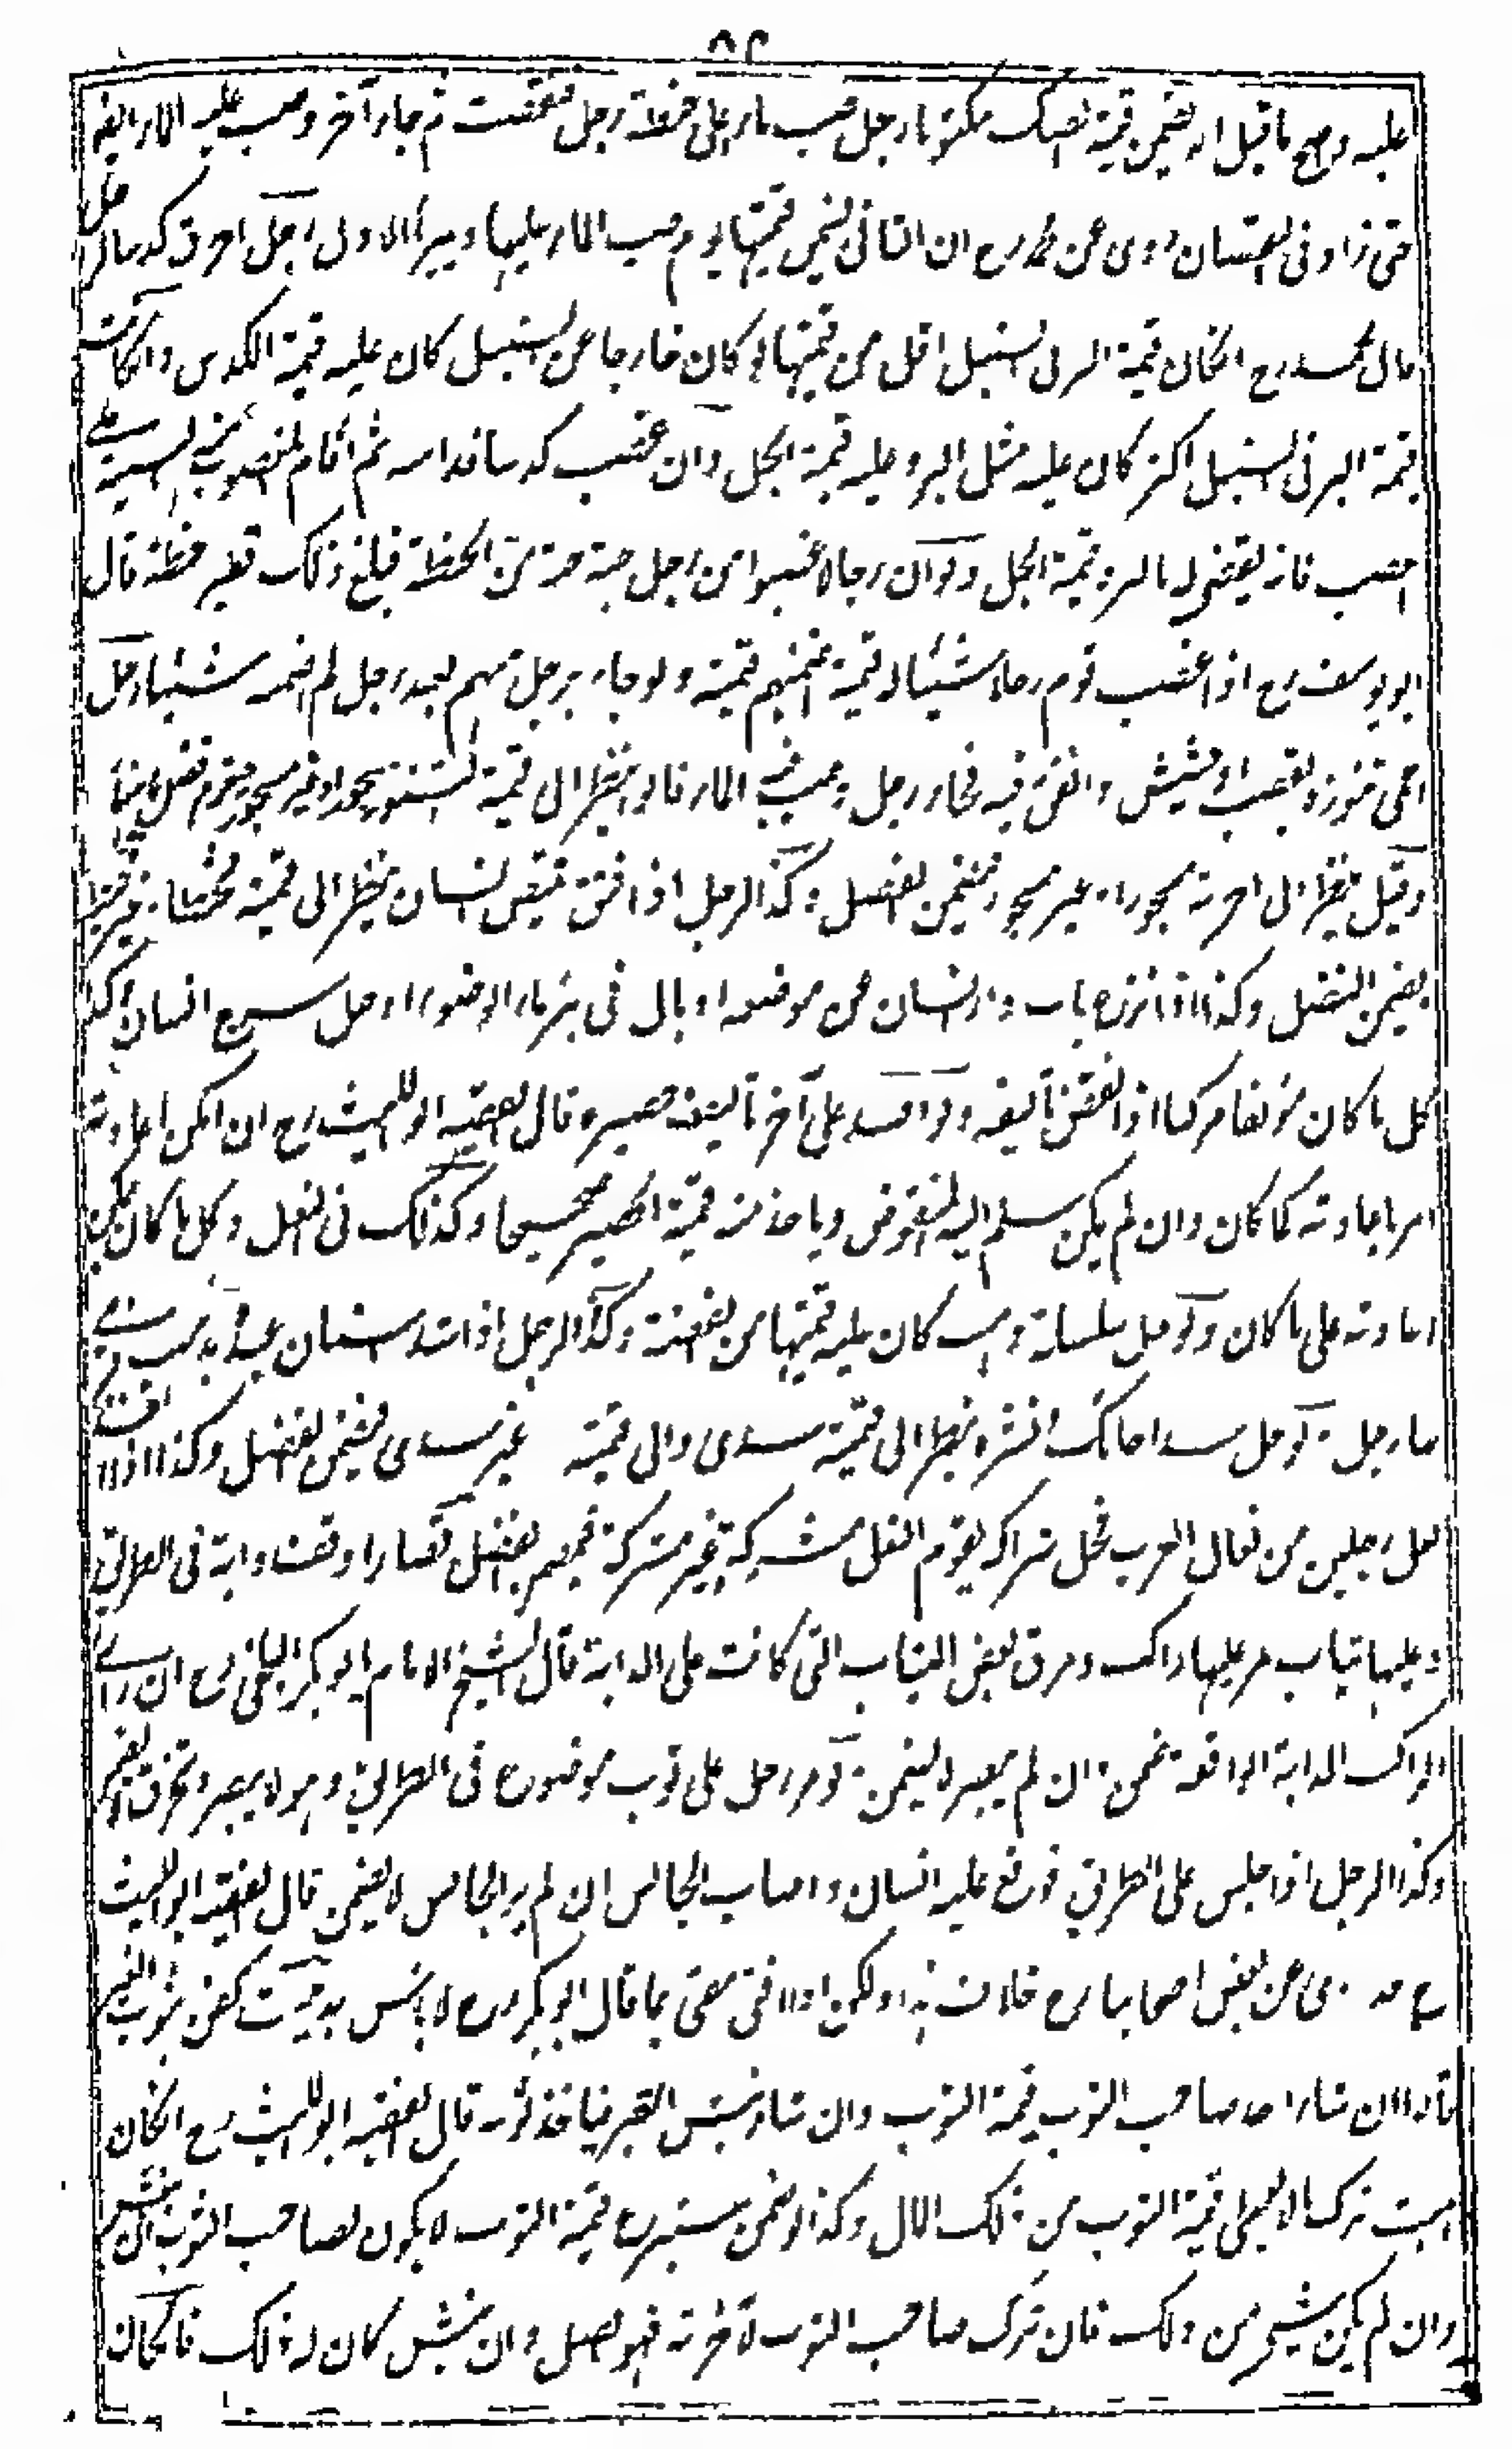 عليه وصح ما قيل انه يضمن قيمة الصك مكتوبا رجل صب ماء على حنطة رجل فنقصت ثم جاء آخر وصب عليه الماء ايضا
حتى زاد فى النقصان روى عن محمد رح ان الثانى يضمن قيمتها يوم صب الماء عليها ويبرأ الاول رجل احرق كدسا لرجل
قال محمد رح ان كان قيمة البر فى السنبل اقل من قيمتها لو كان خارجا عن السنبل كان عليه قيمة الكدس وان كانت
قيمة البر فى السنبل اكثر كان عليه مثل البر وعليه قيمة الجل وان غصب كدسا فداسه ثم اقام المغصوب منه البينة على
الغصب فانه يقضى له بالبر وقيمة الجل ولو ان رجالا غصبوا من رجل حبة حبة من الحنطة فبلغ ذلك قفيز حنطة قال
ابو يوسف رح اذا غصب قوم رجلا شيئا له قيمة اضمنهم قيمته ولو جاء رجل منهم بعد رجل لم اضمنه شيئا رجل
احمى تنوره بقصب او حشيش وانفق فيه فجاء رجل وصب فيه الماء فانه ينظر الى قيمة التنور مسجورا وغير مسجور فيغرم فضل ما بينهما
وقيل ينظر الى اجرته مسجورا وغير مسجور فيضمن الفضل وكذا الرجل اذا فتق قميص انسان ينظر الى قيمته مخيطا وغير مخيط
يضمن الفضل وكذا اذا نزع باب دار انسان عن موضعه او بال فى بئر ماء الوضوء او حل سرج انسان وكذا
كل ما كان مؤلفا مركبا اذا نقض تأليفه ولو افسد على آخر تأليف حصيره قال الفقيه ابو الليث رح ان امكن اعادته
امر باعادته كما كان وان لم يكن سلم اليه المنقوض وياخذ منه قيمة الحصير صحيحا وكذلك فى النعل وكل ما كان يمكن
اعادته على ما كان ولو حل سلسلة ذهب كان عليه قيمتها من الفضة وكذا الرجل
ما رجل ولو حل سدا حائك نشره ينظر الى قيمته سدى والى قيمته غير سدى فيضمن الفضل وكذا اذا
نعل رجلين من نعال العرب فحل شراكه يقوم النعل مشركة وغير مشركة فيضمن الفضل قصارا وقفت دابة فى الطريق
وعليها ثياب مر عليها راكب وخرق بعض الثياب التى كانت على الدابة قال الشيخ الامام ابو بكر البلخى رح ان رأى
الراكب الدابة الواقفة ضمن وان لم يبصر لا يضمن ولو مر رجل على ثوب موضوع فى الطريق وهو لا يبصره فتخرق لا يضمن
وكذا الرجل اذا جلس على الطريق فوقع عليه انسان واصاب الجالس ان لم ير الجالس لا يضمن قال الفقيه ابو الليث
رح قد روى عن بعض اصحابنا رح خلاف هذا ولكن اذا افتى مفتى بما قال ابو بكر رح لا بأس به ميت كفن بثوب الغير
قالوا ان شاء اخذ صاحب الثوب قيمة الثوب وان شاء نبش القبر فياخذ ثوبه قال الفقيه ابو الليث رح ان كان
الميت ترك مالا يعطى قيمة الثوب من ذلك المال وكذا لو ضمن متبرع قيمة الثوب لا يكون لصاحب الثوب ان ينبش
وان لم يكن شئ من ذلك فان ترك صاحب الثوب لآخرته فهو افضل وان نبش كان له ذلك فان كان